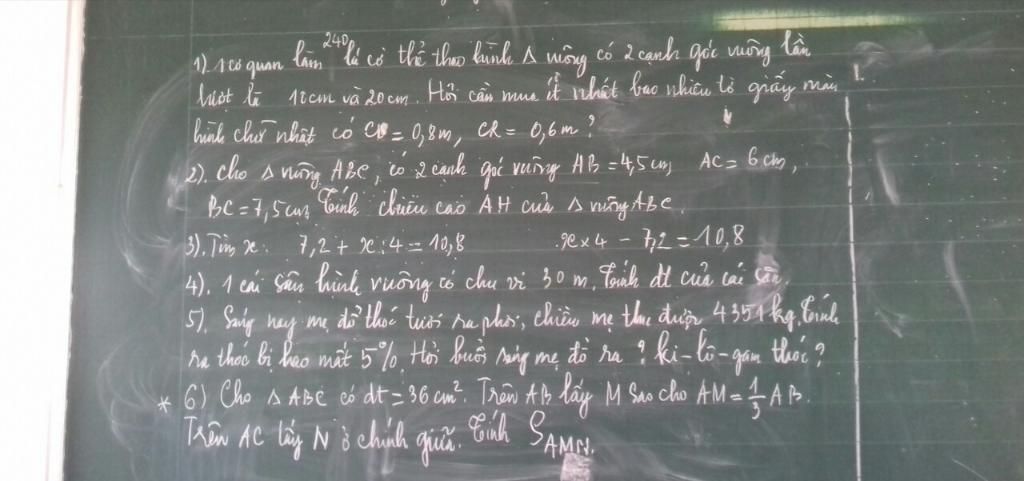 240
1) 1 cơ quan làm lá cờ thể thao hình Δ vuông có 2 cạnh góc vuông lần
lượt là 12cm và 20cm. Hỏi cần mua ít nhất bao nhiêu tờ giấy màu
hình chữ nhật có CD = 0,8m, CR = 0,6m?
2). Cho Δ vuông ABC, có 2 cạnh góc vuông AB = 4,5cm, AC = 6cm,
BC = 7,5cm, Tính chiều cao AH của Δ vuông ABC.
3). Tìm x: 7,2 + x : 4 = 10,8 x × 4 - 7,2 = 10,8
4). 1 cái sân hình vuông có chu vi 30 m. Tính dt của cái sân
5). Sáng nay mẹ đổ thóc tươi ra phơi, chiều mẹ thu được 4351kg. Tính
ra thóc bị hao mất 5%. Hỏi buổi sáng mẹ đổ ra ? ki-lô-gam thóc?
* 6) Cho Δ ABC có dt = 36 cm². Trên AB lấy M sao cho AM = 1/3 AB.
Trên AC lấy N ở chính giữa. Tính S AMN.